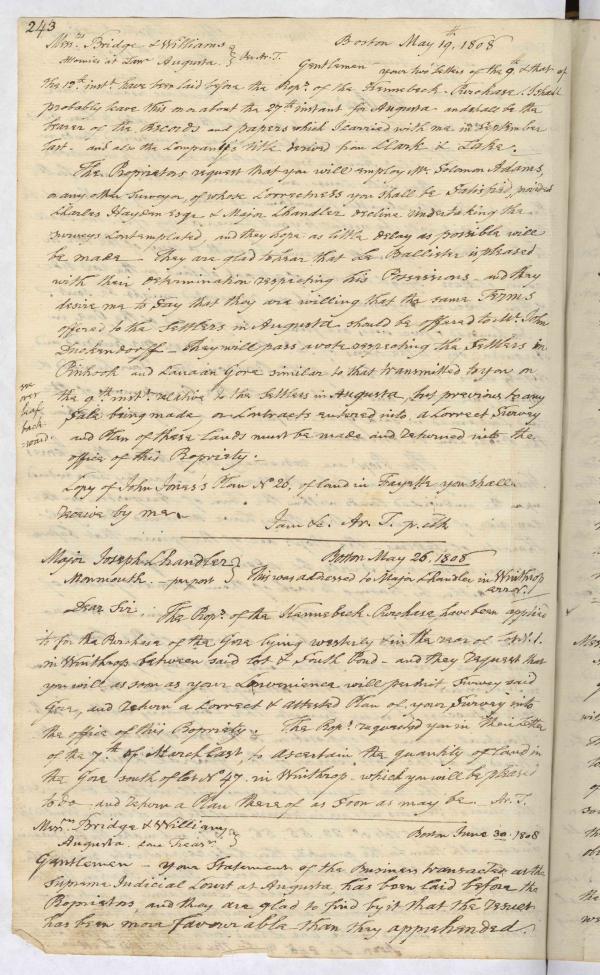 243
Messrs. Bridge & Williams
Attornies at Law Augusta. } Per Ar. T. Boston May 19th. 1808
Gentlemen your two letters of the 9th. & that of
the 12th. inst. have been laid before the Propr. of the Kennebeck Purchase. I shall
probably leave this on or about the 27th instant for Augusta and shall be the
bearer of the Records and papers which I carried with me in September
last - and also the Company's title derived from Clark & Lake.
The Proprietors request that you will employ Mr. Solomon Adams,
or any other Surveyor, of whose Correctness you shall be Satisfied, provided
Charles Hayden Esqr. & Major Chandler decline undertaking the
Surveys Contemplated and they hope as little delay as possible will
be made - They are glad to hear that Ballister is pleased
with their determination respecting his Possessions and they
desire me to say that they are willing that the same Terms
offered to the Settlers in Augusta should be offered to Mr. John
Deckendorff - they will pass a vote respecting the Settlers in
Pinhook and Canaan Gore similar to that transmitted to you on
the 9th. inst. relative to the Settlers in Augusta, but previous to any
Sale being made or Contracts entered into a Correct Survey
and Plan of these Lands must be made and returned into the
office of this Propriety.
see
over
leaf
back-
ward.
Copy of John Jones's Plan No. 26. of land in Fayette you shall
receive by me.
I am &c. Ar. T. p. eth
Major Joseph Chandler
Monmouth. - per post } Boston May 26. 1808
This was addressed to Major Chandler in Winthrop
error.!
Dear Sir, The Propr. of the Kennebeck Purchase have been applied
to for the Purchase of the Gore lying westerly & in the rear of Lot No. 1.
in Winthrop between said Lot & South Pond - and they request that
you will as soon as your Convenience will permit, Survey said
Gore, and return a Correct & attested Plan of your Survey into
the office of this Propriety. The Propr. requested you in their Letter
of the 7th. of March last, to ascertain the quantity of land in
the Gore south of Lot No. 47. in Winthrop - which you will be pleased
to do and return a Plan thereof as soon as may be. Ar. T.
Messrs. Bridge & Williams
Augusta } Boston June 30. 1808
Gentlemen - Your Statement of the Business transacted at the
Supreme Judicial Court at Augusta, has been laid before the
Proprietors and they are glad to find by it that the result
has been more favourable than they apprehended.